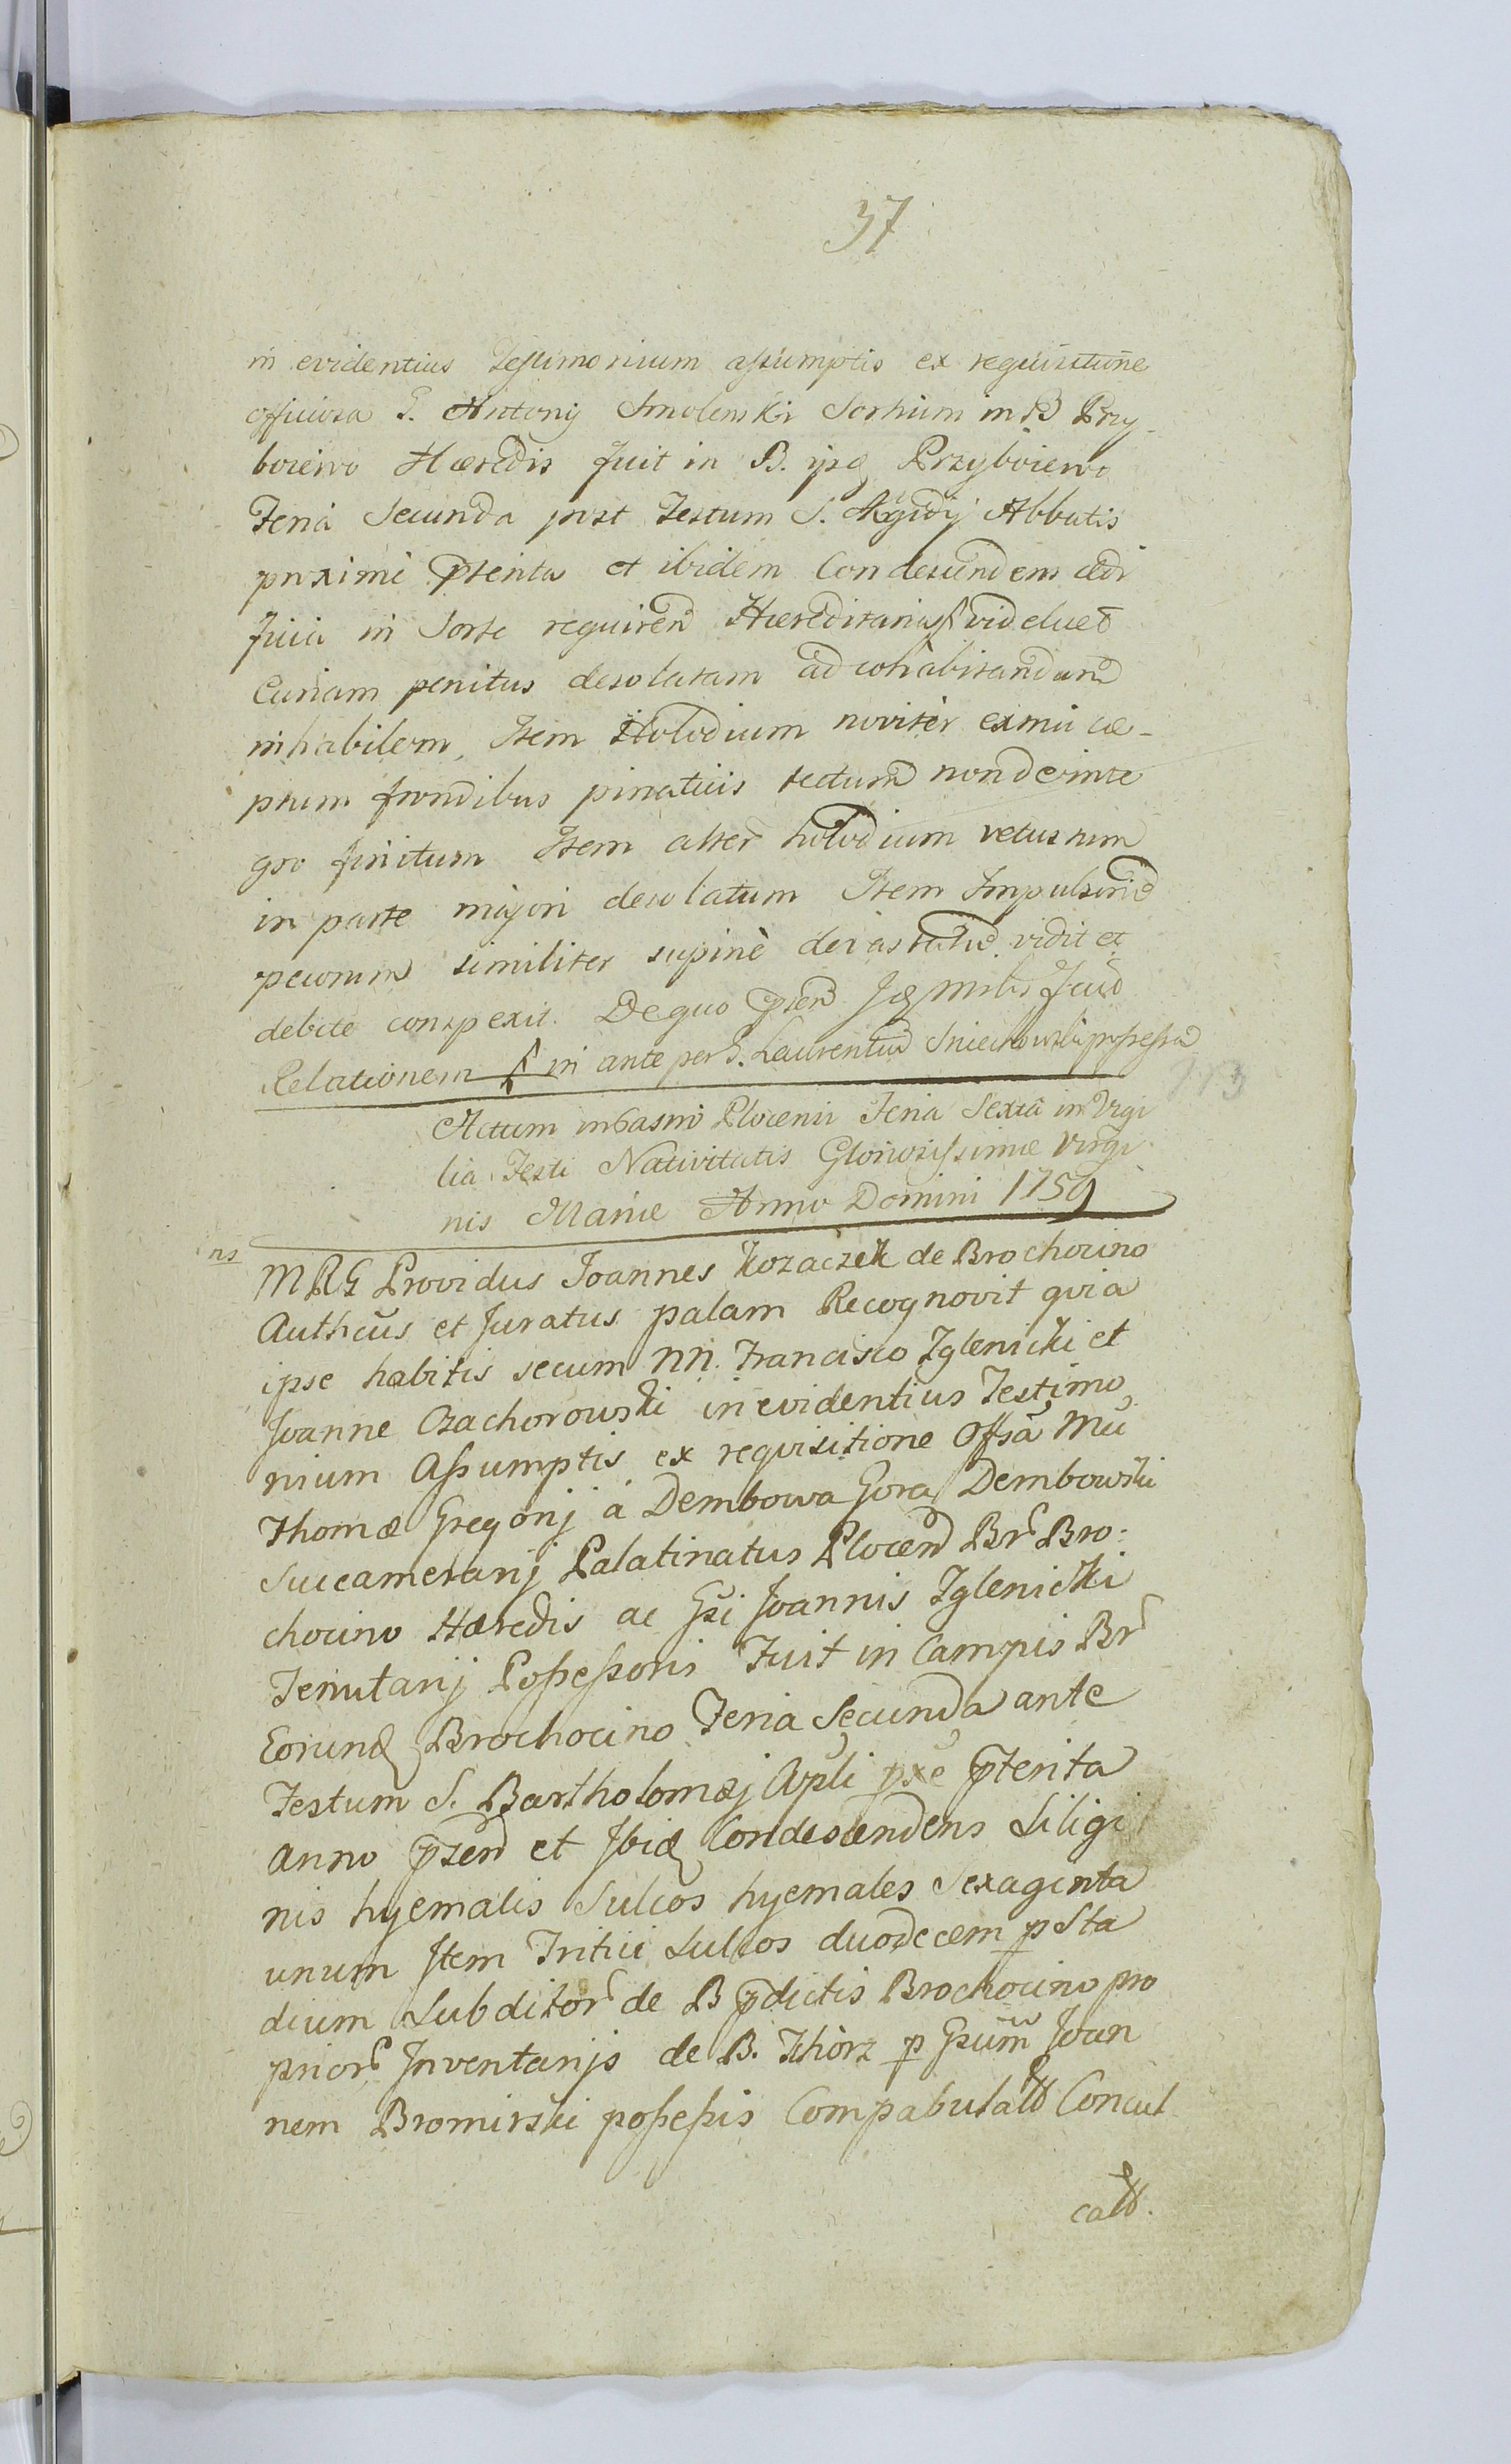 37
in evidentius Testimonium assumptis ex requisitione
officiosa G. Antonij Smolenski Sortium in B Przy-
boiewo Hæredis fuit in B. ipsq Przyboiewo
Feria Secunda post Festum S. Ægidij Abbatis
proximè pterita et ibidem Condescendens ædi
ficia in Sorte requiren Hæreditaria videlicet
Curiam penitus desolatam ad cohabitandum
inhabilem, Item Holodium noviter
ptum frondibus pineaticis tectum nondeinte
gro finitum Item alter holodium vetustum
in parte majori desolatum Item Impulsorie
pecorum similiter supinè devastatue vidit et
debite conspexit. De quo psen Jq Mltr fecid
Relationem in ante per G. Laurentiud Sniechowski possessa
Actum in Castro Plocensi Feria Sexta in Vigi
lia Festi Nativitatis Gloriosissimæ Virgi
nis Mariæ Anno Domini 1759
ns
MRG Providus Joannes Kozaczek de Brochocino
Authcus et Juratus palam Recognovit qvia
ipse habitis secum NN. Francisco Zglenicki et
Joanne Czachorowski in evidentius Testimo
nium Assumptis ex reqvisitione Offsa Mci
Thomæ Gregorij à Dembowa Gora Dembowski
Succamerarij Palatinatus Plocen Br Bro:
chocino Hæredis ac Gsi Joannis Zglenicki
Tenutarij Possessoris Fuit in Campis Br
Eorund Brochocino Feria Secunda ante
Festum S. Bartholomæj Apli pxe pterita
Anno psen et Ibid Condescendens Siligi
nis hyemalis Sulcos hyemales Sexaginta
unum Item Tritici Sulcos duodecem p Sta
dium Subditor de B pdictis Brochocino pro
prior Inventarijs de B. Thorz p Gsum Joan
nem Bromirski possessis Compabulat Concul
cat.